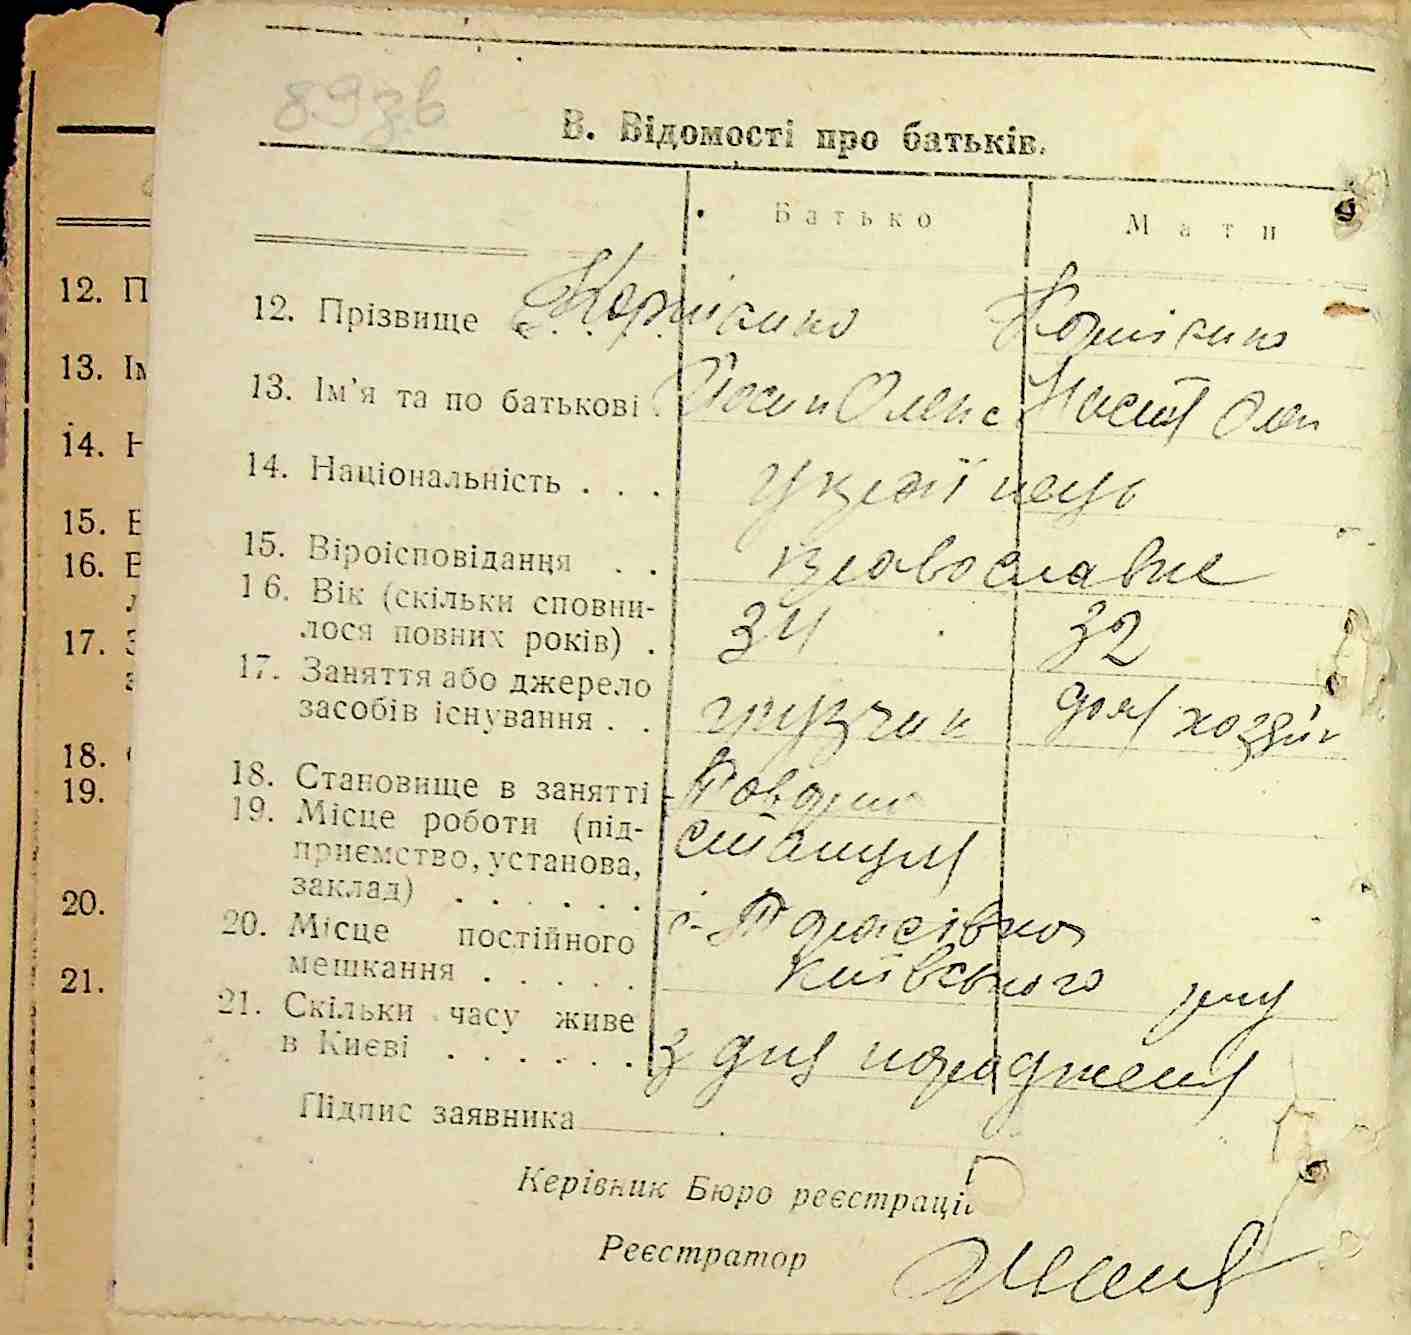 89зв
В. Відомості про батьків.
Батько Мати
12. П
12. Прізвище
13. Ім
13. Ім'я та по батькові Олекс
14. Н
14. Національність . . . українець
15. В
15. Віроісповідання . . православне
16. В
16. Вік (скільки сповни-
лося повних років) . 34 32
17. З
17. Заняття або джерело
засобів існування . . грузчик дом хозяйк
18.
18. Становище в занятті
19.
19. Місце роботи (під-
приємство, установа, станция
заклад) . . . . . .
20.
20. Місце постійного с. Тарасівка
мешкання . . . . . київського р-ну
21.
21. Скільки часу живе
в Києві . . . . . . з дня народження
Підпис заявника
Керівник Бюро реєстрації
Реєстратор